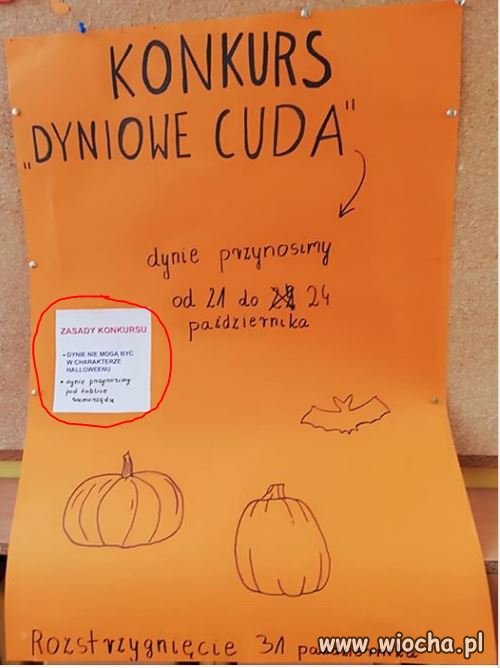 KONKURS
"DYNIOWE CUDA"
dynie przynosimy
od 21 do 24
października
ZASADY KONKURSU
• DYNIE NIE MOGĄ BYĆ
W CHARAKTERZE
HALLOWEENU
• dynie przynosimy
pod tablice
samorządu
Rozstrzygnięcie 31 października
www.wiocha.pl